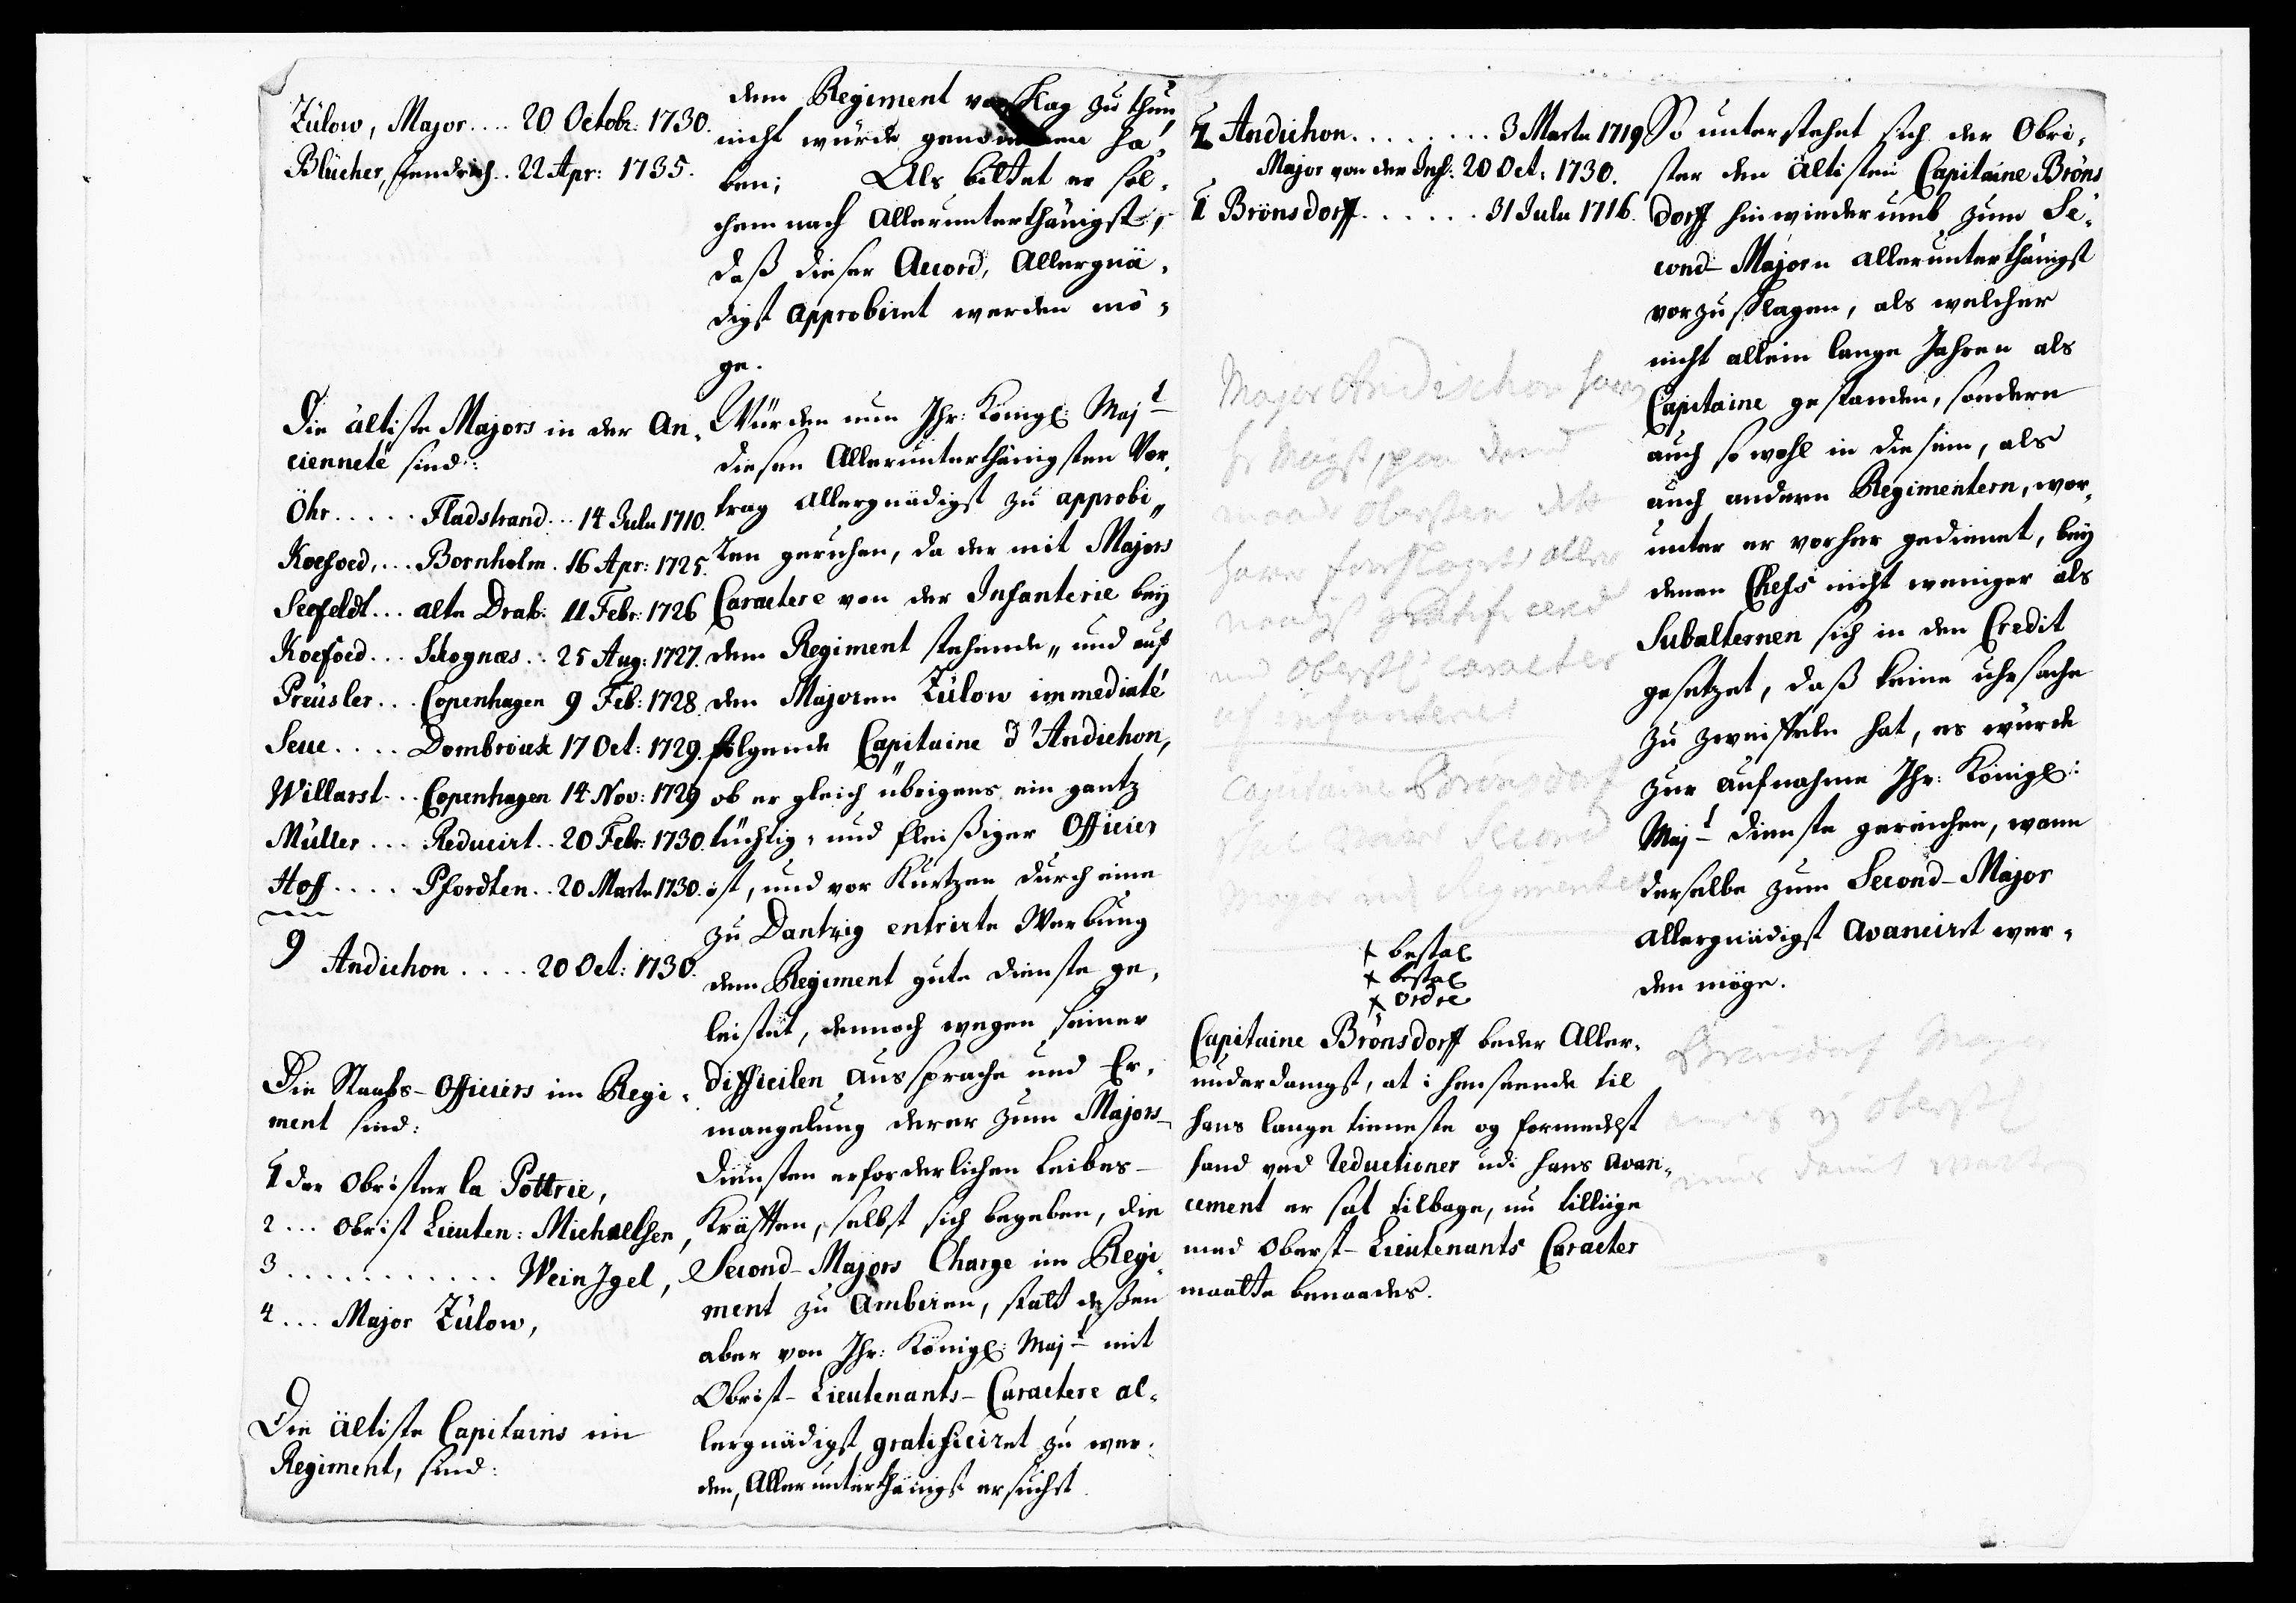 Zülow, Major.... 20 Octobr: 1730.
Blücher, Fendrich.. 22 Apr: 1735.
Die ältiste Majors in der An-
cienneté sind:
Öhr..... Fladstrand... 14 Julii 1710.
Koefoed,... Bornholm. 16 Apr: 1725.
Seefeldt... alte Drab: 11 Febr: 1726
Koefoed... Skognæs.. 25 Aug: 1727.
Preüsler... Copenhagen 9 Feb: 1728.
Seue.... Dombroick 17 Oct: 1729.
Willarst... Copenhagen 14 Nov: 1729
Müller... Reducirt.. 20 Febr: 1730.
Hoff.... Pfordten.. 20 Martii 1730.
9
Andichon.... 20 Oct: 1730.
Die Staabs-Officiers im Regi-
ment sind:
1 der Obrister la Pottrie,
2... Obrist Lieuten: Michaelsen,
3............ WeinIgel,
4... Major Zülow,
Die ältiste Capitains im
Regiment, sind:
dem Regiment vorschlag zu thun
nicht würde genommen ha-
ben; Als bittet er sol-
chem nach Allerunterthänigst,
daß dieser Accord, Allergnä-
digst approbiret werden mö-
ge.
Würden nun Ihr: Königl: Majt
diesen Allerunterthänigsten Vor-
trag Allergnädigst zu approbi-
ren geruhen, da der mit Majors
Caractere von der Infanterie bey
dem Regiment stehende, und auf
den Majoren Zülow immediaté
folgende Capitaine d'Andichon,
ob er gleich übrigens ein gantz
tüchtig- und fleißiger Officier
ist, und vor Kurtzen durch eine
zu Dantzig entrirte Werbung
dem Regiment gute dienste ge-
leistet, dennoch wegen seiner
difficilen Aussprache und Er-
mangelung derer zum Majors-
Diensten erforderlichen Leibes-
Kräfften, selbst sich begeben, die
Second-Majors Charge im Regi-
ment zu ambiren, statt deßen
aber von Ihr: Königl: Majt mit
Obrist-Lieutenants-Caractere al-
lergnädigst gratificiret zu wer-
den, Allerunterthänigst ersucht.
2 Andichon........ 3 Martii 1719
Major von der Inf: 20 Oct: 1730.
1 Brönsdorff...... 31 Julii 1716.
Major Andichon
Oberstl caracter
af infanteriet
Capitaine Brönsdorf
Second
Major ved Regimentet
+ bestal
+ bestal
+ ordre
Capitaine Brönsdorff beder Aller-
underdanigst, at i henseende til
hans lange tieneste og formedelst
hand ved Reductioner udi hans avan-
cement er sat tilbage, nu tillige
med Oberst-Lieutenants Caracter
maatte benaades.
So unterstehet sich der Obri-
ster den ältisten Capitaine Bröns
dorff hinwiederumb zum Se-
cond-Majorn allerunterthänigst
vorzuschlagen, als welcher
nicht allein lange Jahren als
Capitaine gestanden, sondern
auch so wohl in diesem, als
auch andern Regimentern, wor-
unter er vorher gedienet, bey
denen Chefs nicht weniger als
Subalternen sich in den Credit
gesetzet, daß keine uhrsache
zu zweiffeln hat, es würde
zur aufnahme Ihr: Königl:
Majt dienste gereichen, wann
derselbe zum Second-Major
Allergnädigst avanciret wer-
den möge.